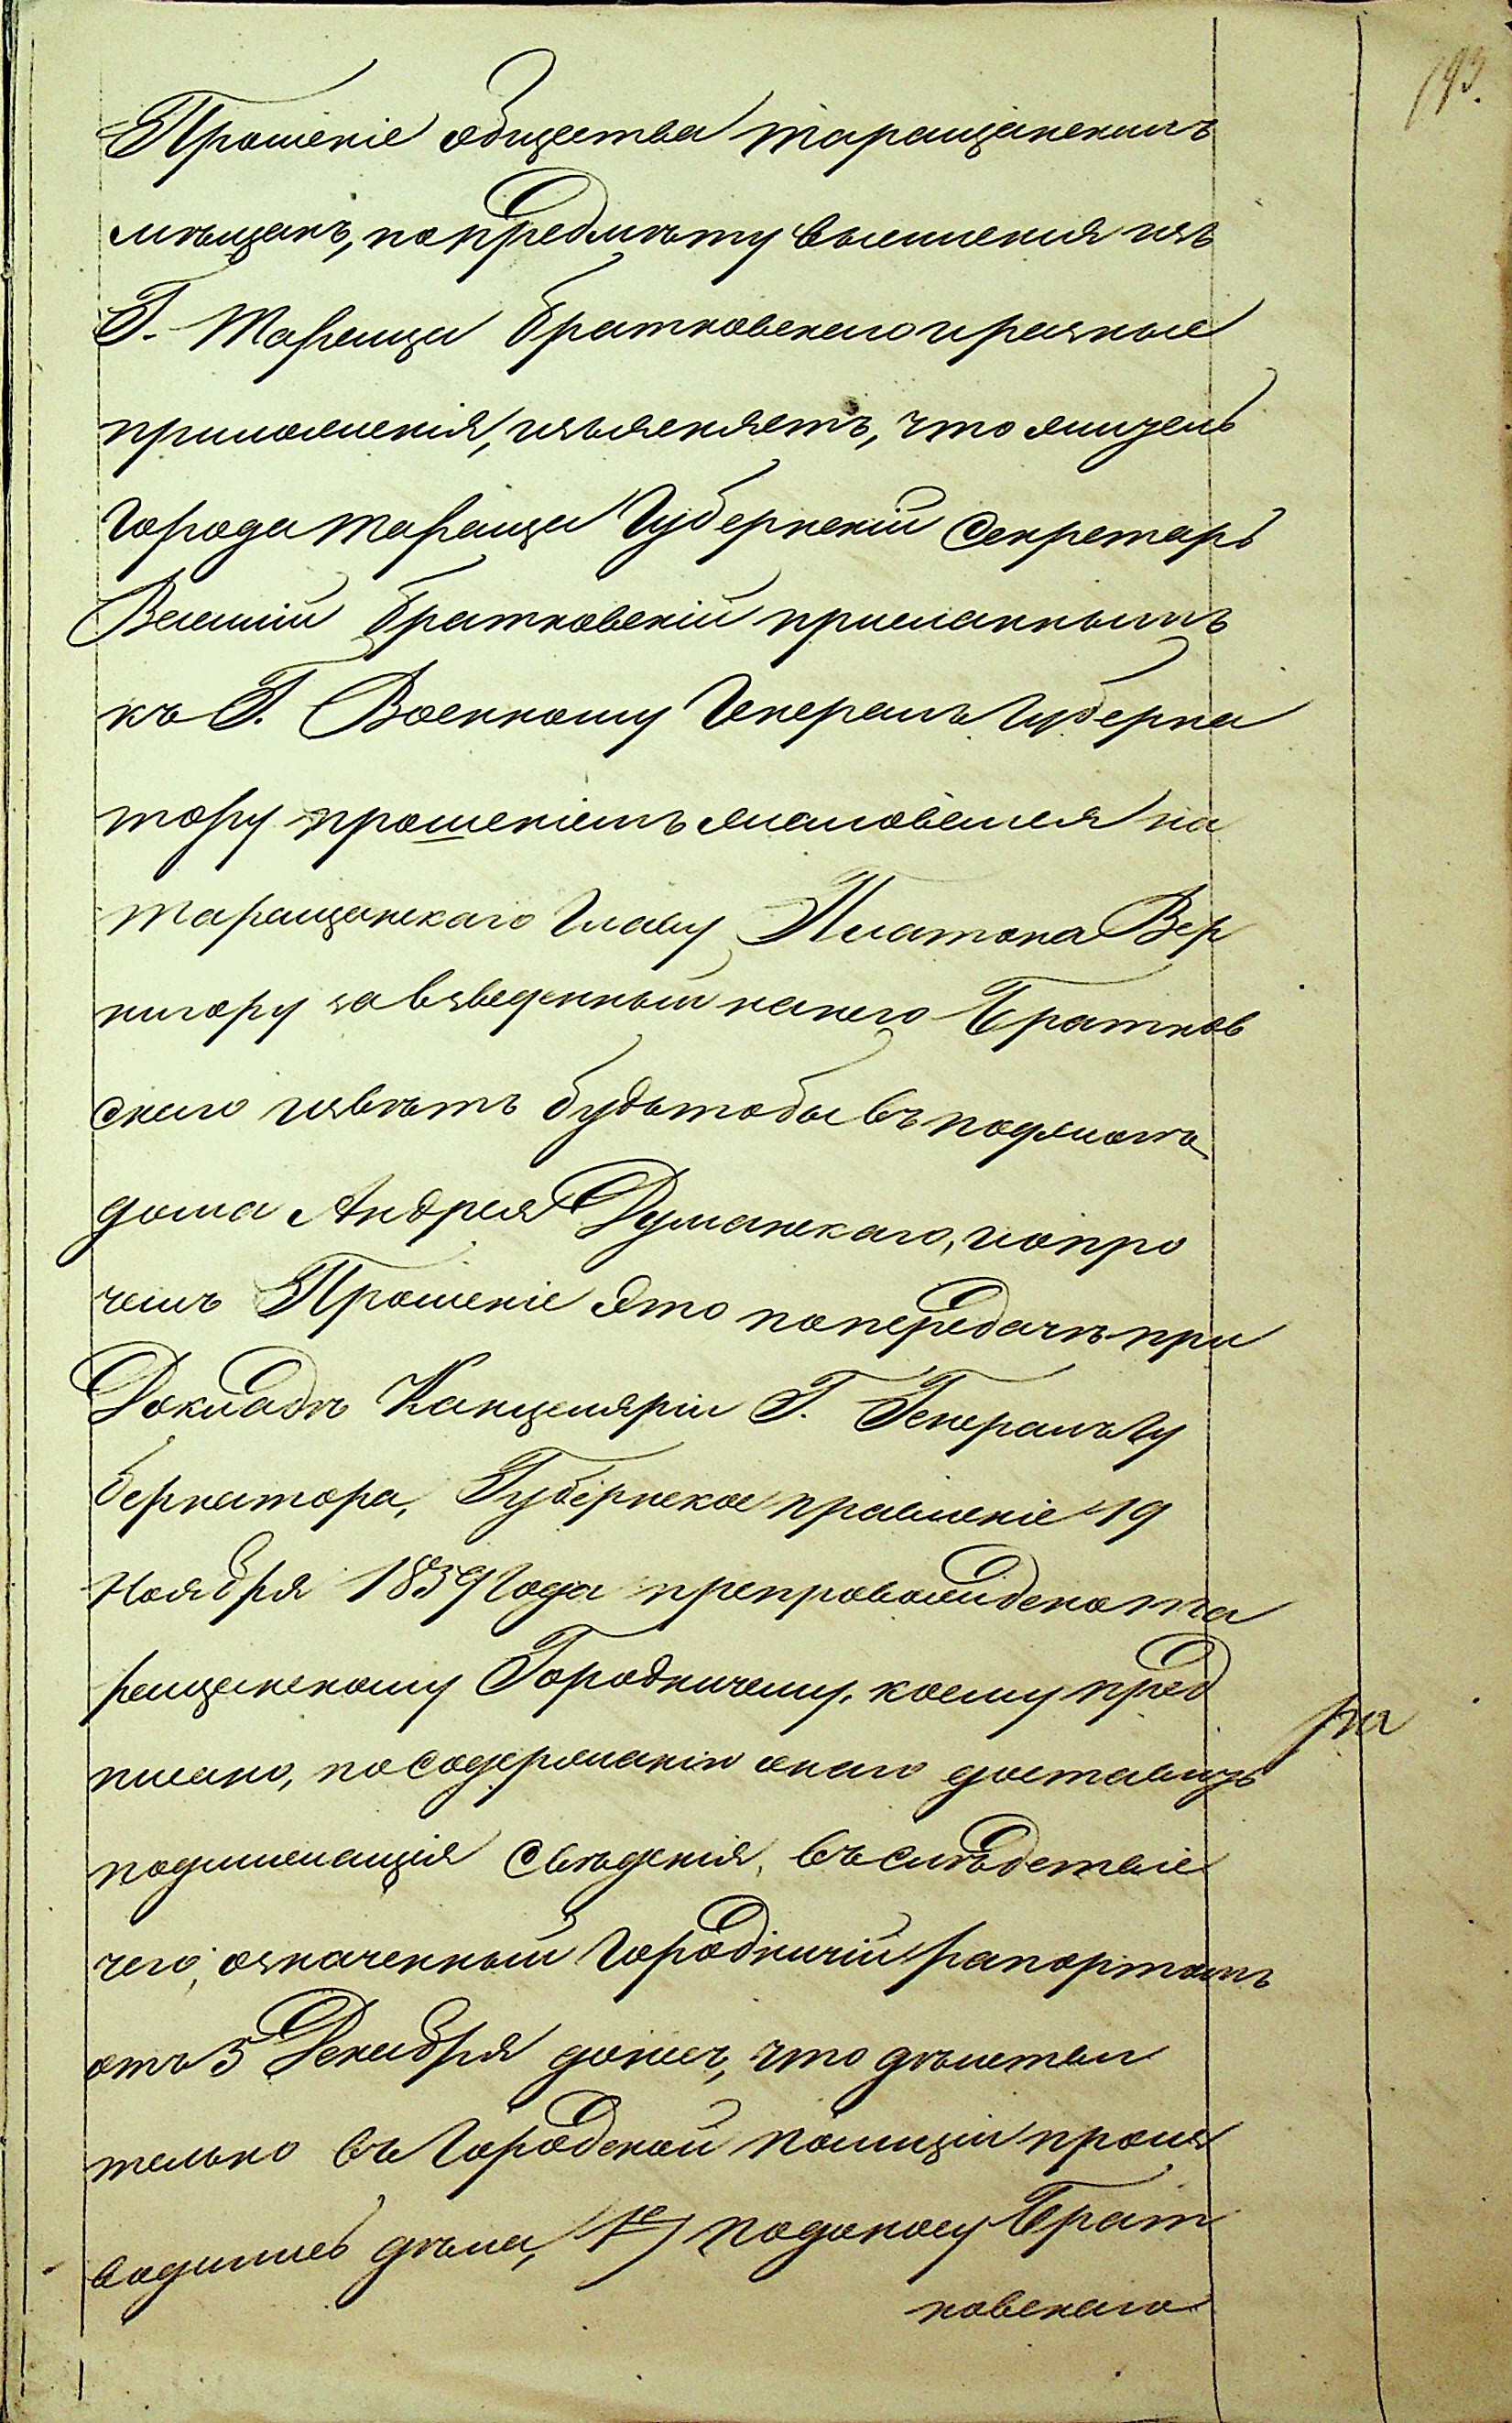 193.
Прошеніе общества таращанскихъ
мѣщанъ, по предмѣту высшленія изъ
Г. Таращи Братковскаго и разные
приложенія, изъясняетъ, что житель
города Таращи Губернскій Секретарь
Василій Братковскій присланнымъ
къ Г. Военному Генералъ Губерна
тору прошеніемъ жаловался на
таращанскаго Главу Платона Вер
нигору за взведенный на него Братков
скаго извѣтъ будьтобы въ поджогѣ
дома Андрея Думанскаго, и о про
чемъ Прошеніе это по передачѣ при
Докладѣ Канцеляріи Г. Генералъ Гу
бернатора, Губернское правленіе 19
Ноября 1859 года препровождено та
ращанскому Городничему, коему пред
писано, по содержанію онаго доставить
ра
подлежащія свѣдѣнія, въ слѣдствіе
чего, означенный Городничій рапортомъ
отъ 5 Декабря донесъ, что дѣистви
тельно въ Городской полиціи произ
водились дѣла, 1<sup>е</sup>) по доносу Брат
ковскаго